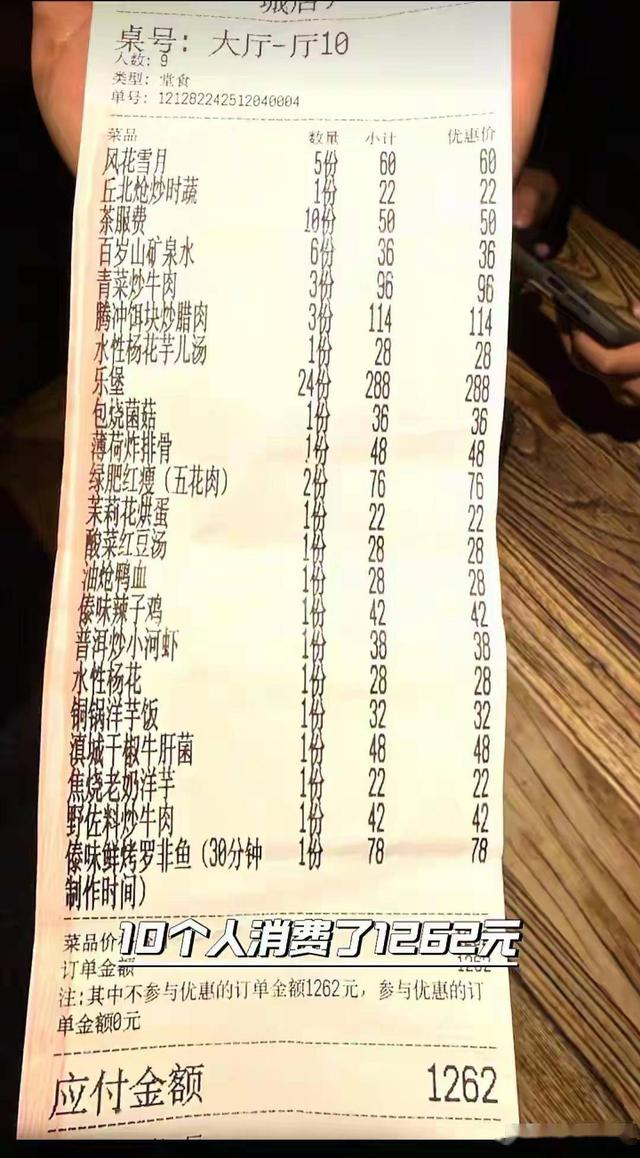 桌号: 大厅-厅10
人数: 9
类型: 堂食
单号: 121282242512040004
菜品 数量 小计 优惠价
风花雪月 5份 60 60
丘北炝炒时蔬 1份 22 22
茶服费 10份 50 50
百岁山矿泉水 6份 36 36
青菜炒牛肉 3份 96 96
腾冲饵块炒腊肉 3份 114 114
水性杨花芋儿汤 1份 28 28
乐堡 24份 288 288
包烧菌菇 1份 36 36
薄荷炸排骨 1份 48 48
绿肥红瘦（五花肉） 2份 76 76
茉莉花烘蛋 1份 22 22
酸菜红豆汤 1份 28 28
油炝鸭血 1份 28 28
傣味辣子鸡 1份 42 42
普洱炒小河虾 1份 38 38
水性杨花 1份 28 28
铜锅洋芋饭 1份 32 32
滇城干椒牛肝菌 1份 48 48
焦烧老奶洋芋 1份 22 22
野佐料炒牛肉 1份 42 42
傣味鲜烤罗非鱼（30分钟 1份 78 78
制作时间）
菜品价
10个人消费了1262元
订单金额 1262
注:其中不参与优惠的订单金额1262元，参与优惠的订
单金额0元
应付金额 1262